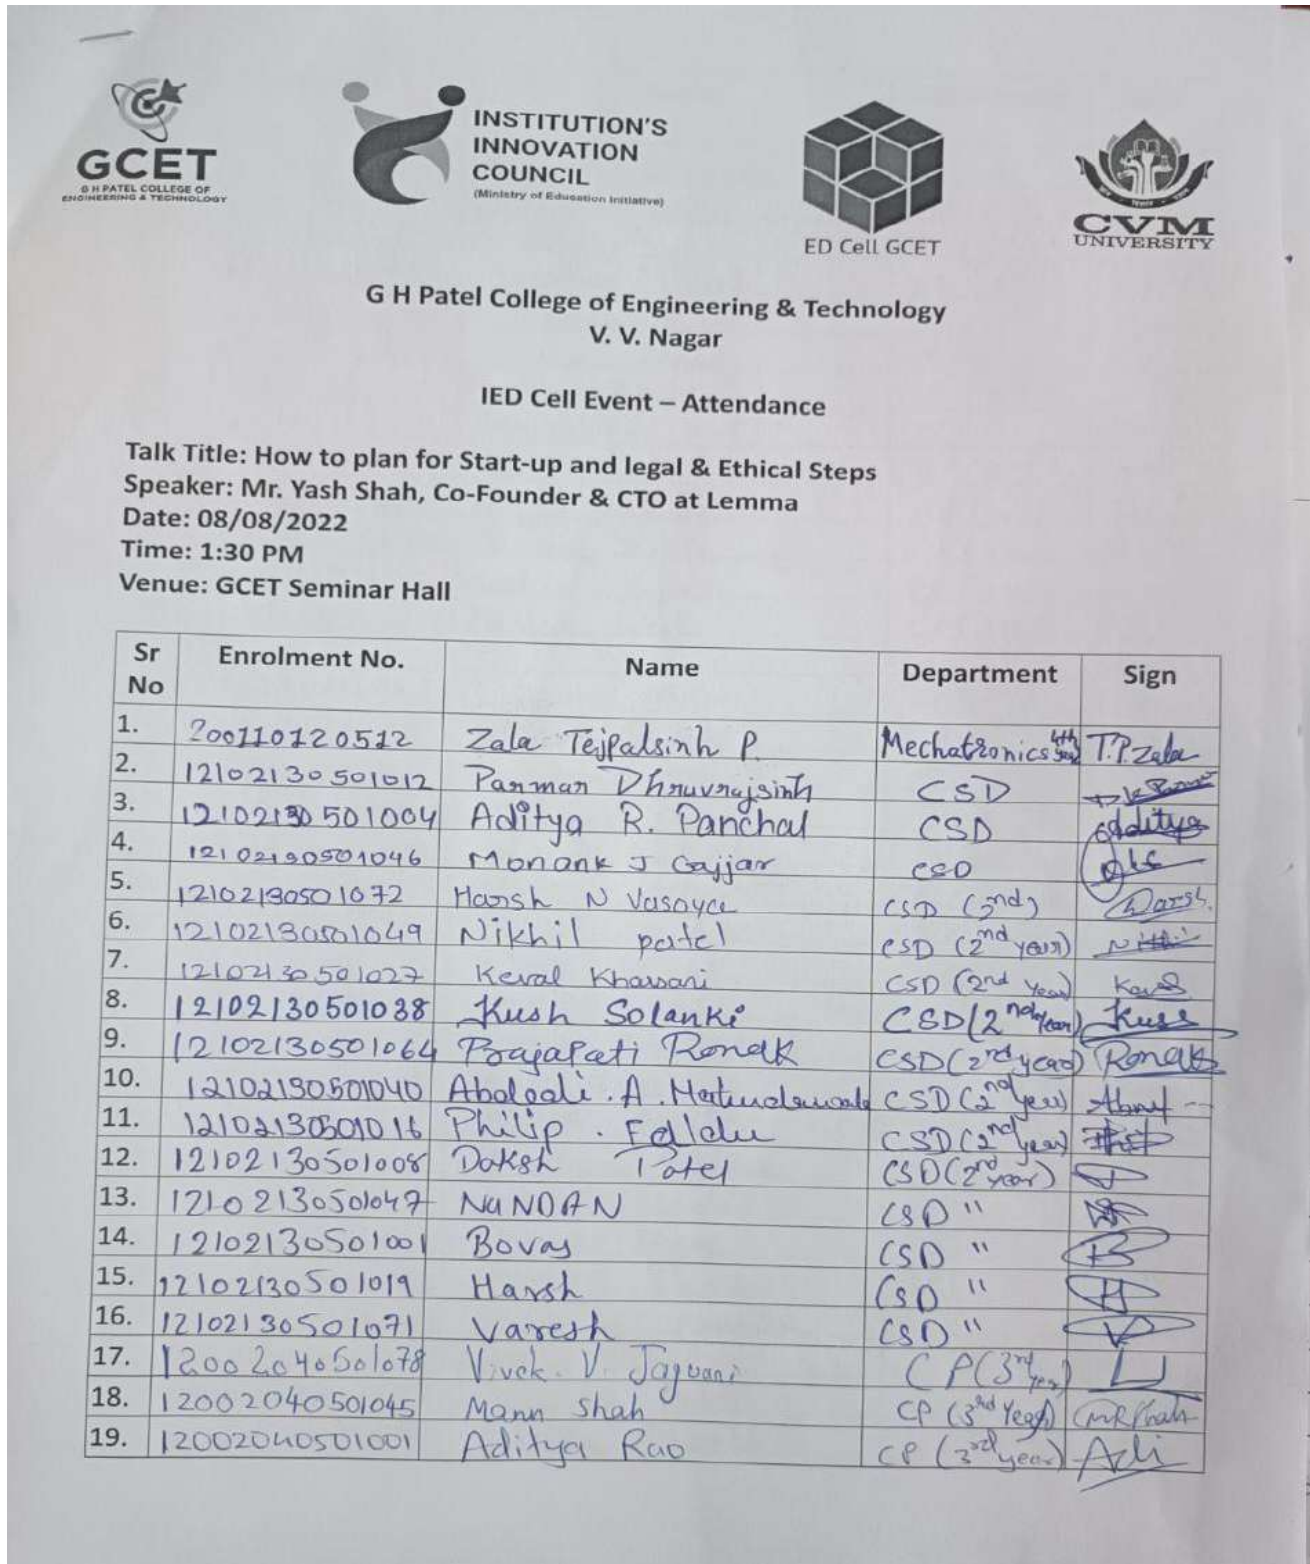 GCET
G H PATEL COLLEGE OF
ENGINEERING & TECHNOLOGY
INSTITUTION'S
INNOVATION
COUNCIL
(Ministry of Education Initiative)
ED Cell GCET
CVM
UNIVERSITY
G H Patel College of Engineering & Technology
V. V. Nagar
IED Cell Event – Attendance
Talk Title: How to plan for Start-up and legal & Ethical Steps
Speaker: Mr. Yash Shah, Co-Founder & CTO at Lemma
Date: 08/08/2022
Time: 1:30 PM
Venue: GCET Seminar Hall
Sr No Enrolment No. Name Department Sign
1. 200110120512 Zala Tejpalsinh P. Mechatronics 4th year T.P.Zala
2. 12102130501012 Parmar Dhruvrajsinh CSD
3. 12102130501004 Aditya R. Panchal CSD Aditya
4. 12102130501046 Monank J Gajjar CSD
5. 12102130501072 Harsh N Vasoya CSD (2nd) Harsh.
6. 12102130501049 Nikhil patel CSD (2nd year)
7. 12102130501027 Keval Khassani CSD (2nd Year)
8. 12102130501038 Kush Solanki CSD (2nd year) Kush
9. 12102130501064 Prajapati Ronak CSD (2nd year) Ronak
10. 12102130501040 CSD (2nd year)
11. 12102130501016 Philip . Falldu CSD (2nd year)
12. 12102130501008 Daksh Patel CSD (2nd year)
13. 12102130501047 NANDAN CSD "
14. 12102130501001 CSD " B
15. 12102130501019 Harsh CSD " H
16. 12102130501071 Varesh CSD " V
17. 12002040501078 Vivek. V. Jaguani CP (3rd year)
18. 12002040501045 Mann Shah CP (3rd Year) MRShah
19. 12002040501001 Aditya Rao CP (3rd year) Adi